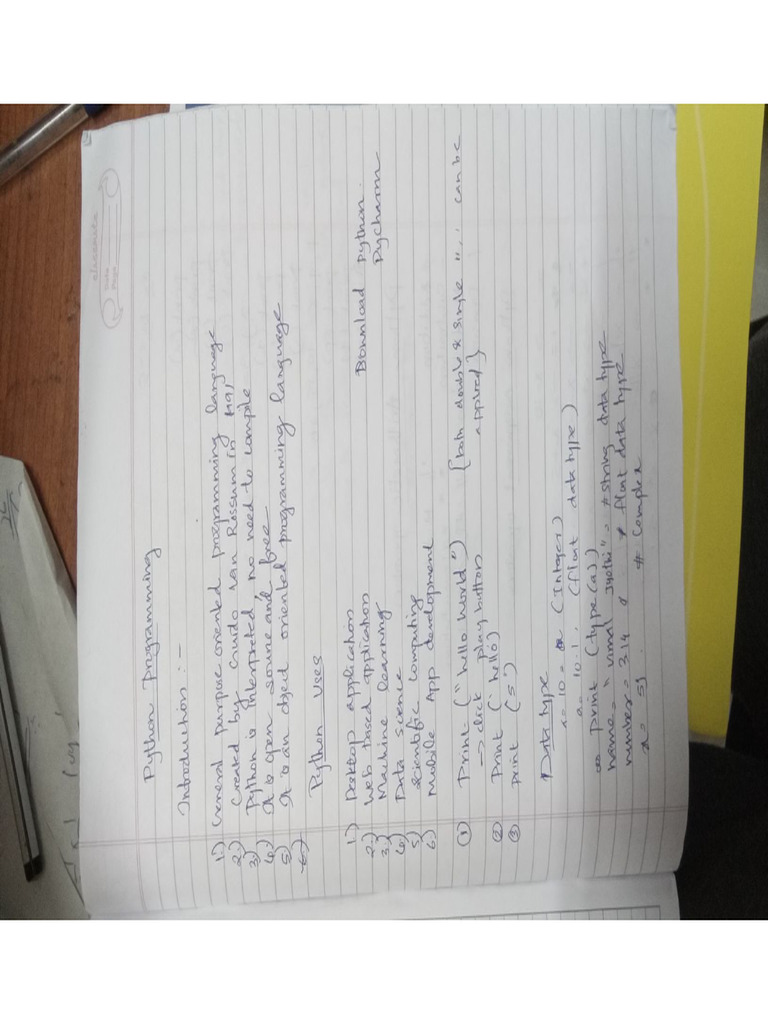 classmate
Date
Page
Python Programming
Introduction :-
1.) General purpose oriented programming language
2.) Created by Guido van Rossum in
3) Python is Interpreted no need to compile
4) It is open source and free
5) It is an object oriented programming language
6)
Python Uses
1.) Desktop application
2.) Web based application Download Python.
3.) Machine learning Pycharm
4) Data science
5) Scientific computing
6) Mobile App development
① Print ("hello World") {both double & single " , ' can be
→ click play button applied}
② Print ('hello')
③ print (5)
Data type
a = 10 (Integer)
a = 10.1. (float data type)
print (type(a))
name = "vimal Jyothi" # string data type
number = 3.14 # float data type
x = 5j. # Complex